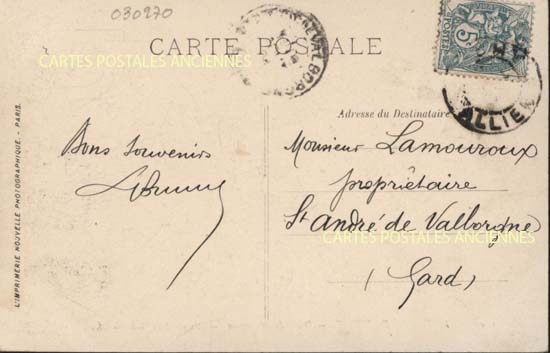 030270
CARTES POSTALES ANCIENNES
CARTE POSTALE
Adresse du Destinataire
Bons souvenirs
Monsieur Lamouroux
propriétaire
St André de Valborgne
CARTES POSTALES ANCIENNES
(Gard)
L'IMPRIMERIE NOUVELLE PHOTOGRAPHIQUE. - PARIS.
5
ALLIE